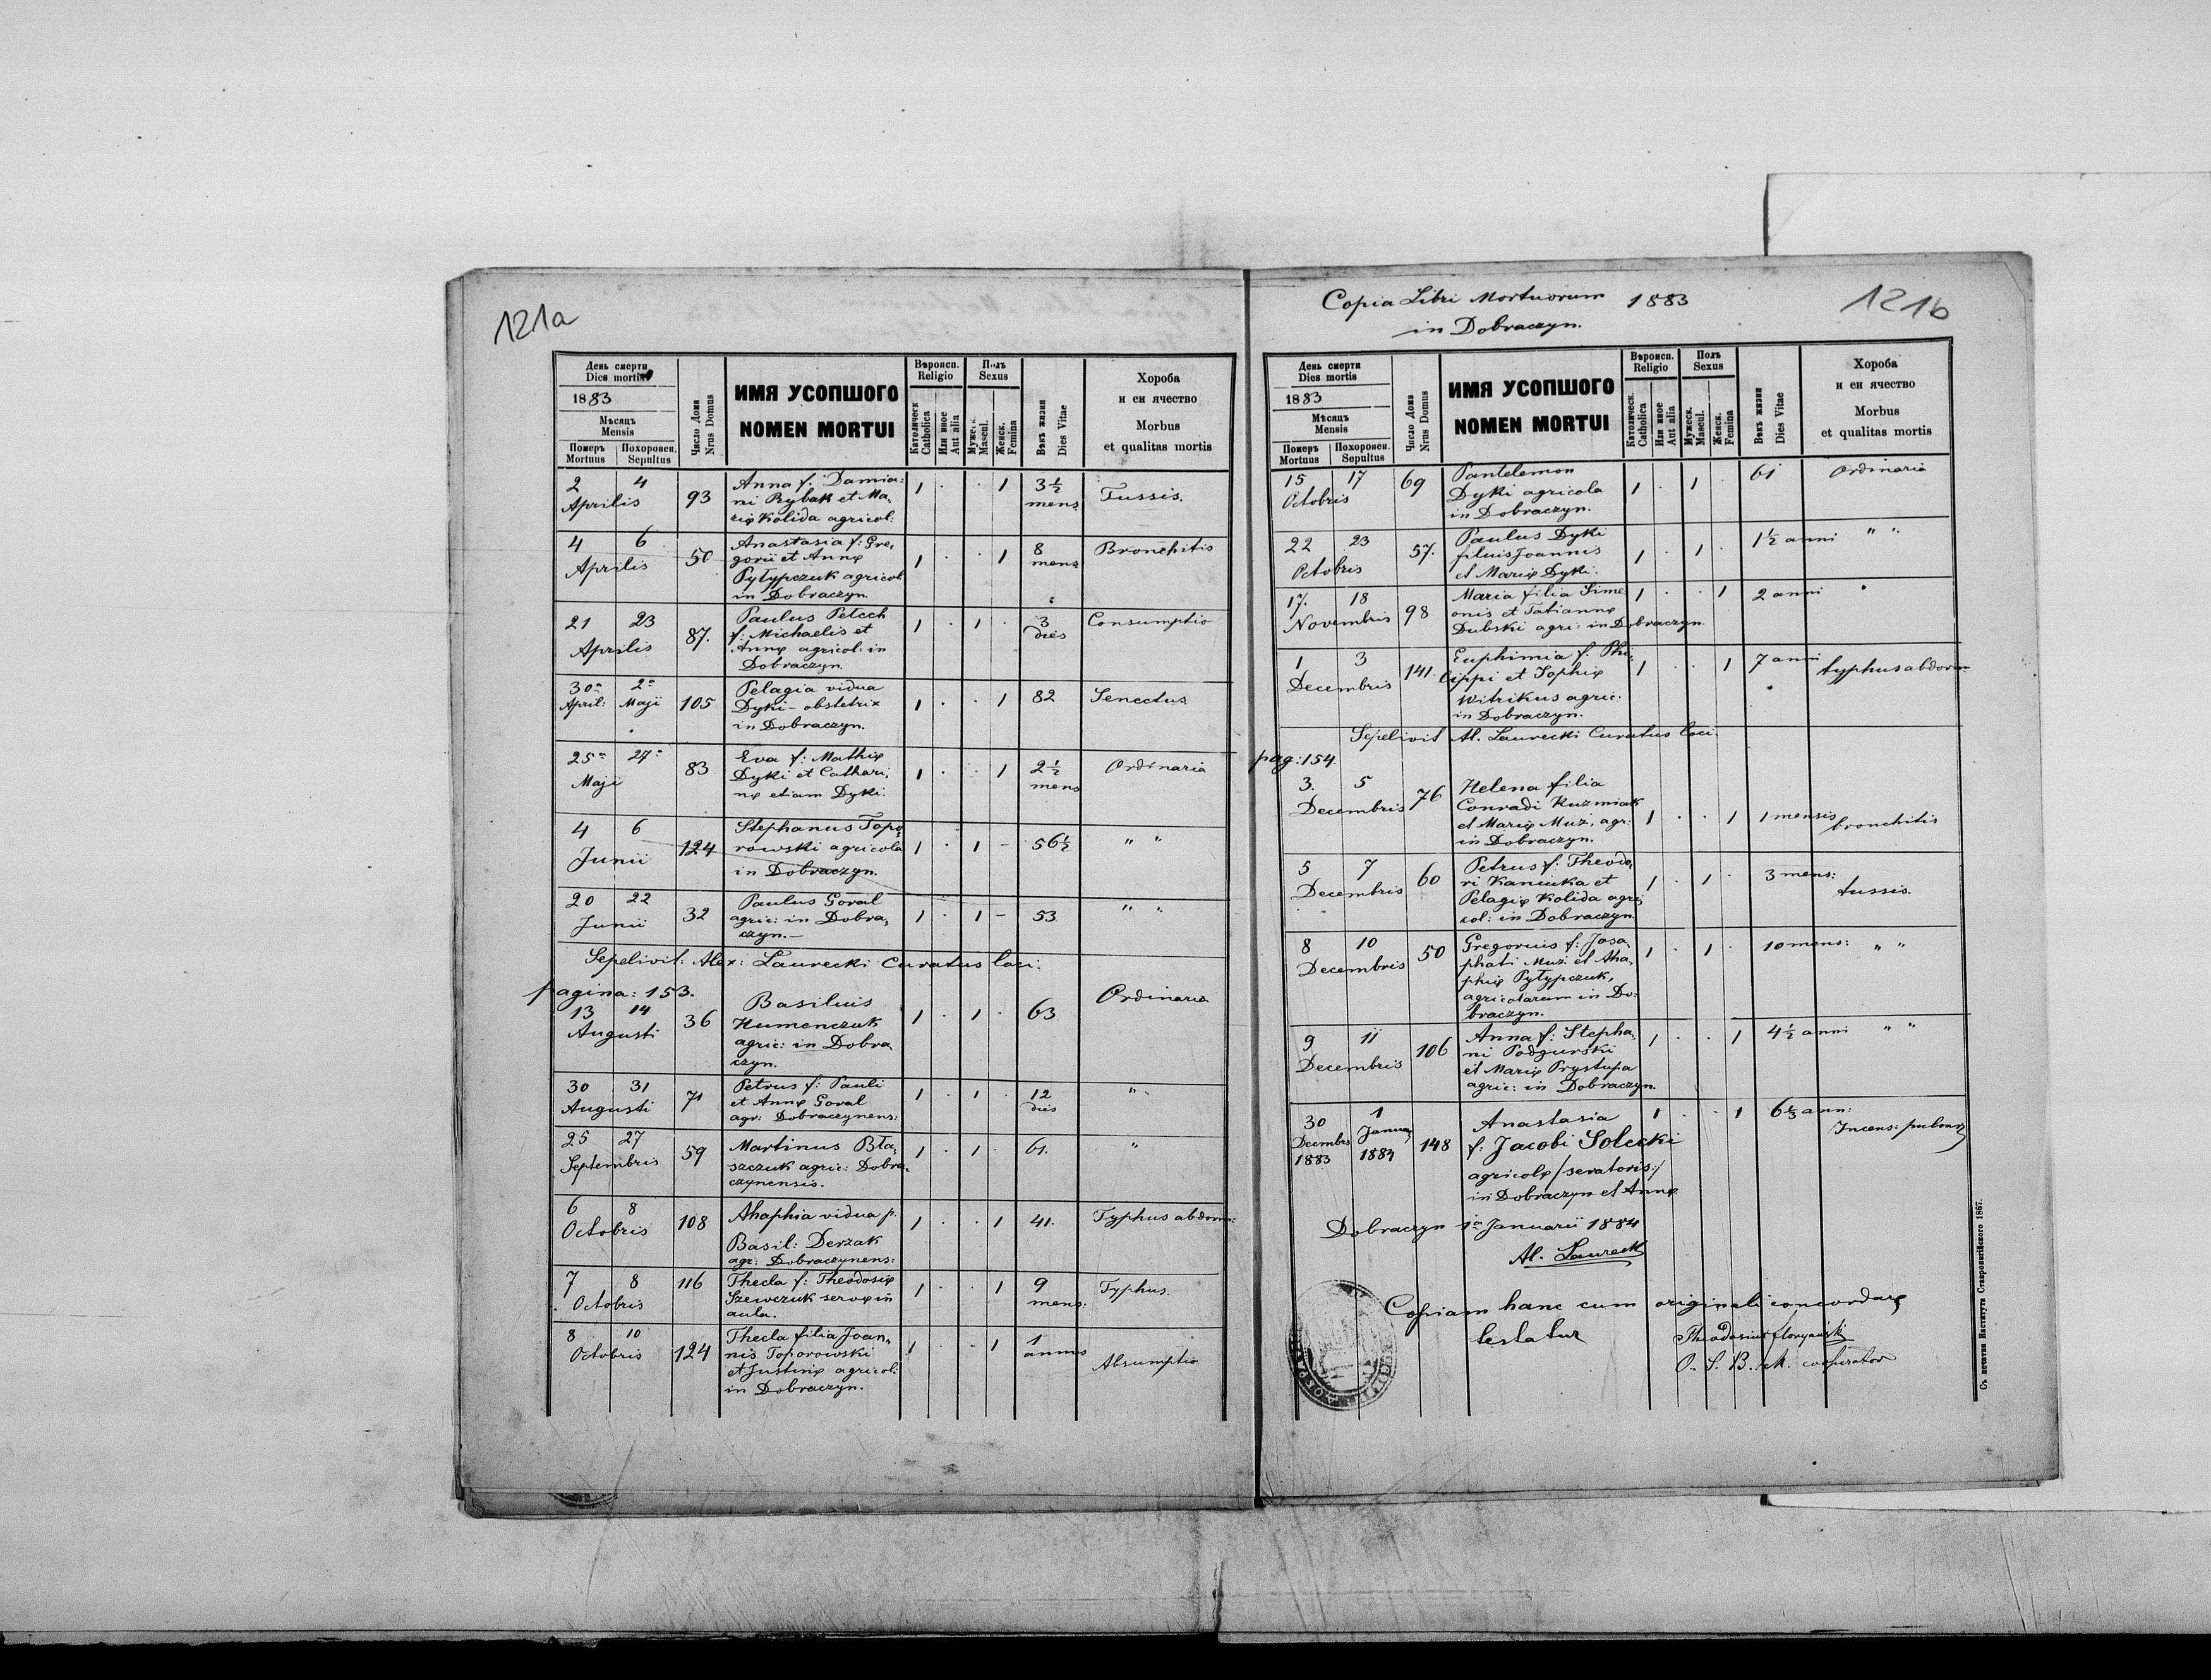 121a
День смерти
Dies mortis
1883
Мѣсяцъ
Mensis
Померъ
Mortuus
Похоронен.
Sepultus
Число Дома
Nrus Domus
ИМЯ УСОПШОГО
NOMEN MORTUI
Вѣроисп.
Religio
Католическ
Catholica
Или иное
Aut alia
Полъ
Sexus
Мужеск.
Mascul.
Женск.
Femina
Вѣкъ жизни
Dies Vitae
Хороба
и еи ячество
Morbus
et qualitas mortis
2 4 Aprilis 93
Anna f: Damia:
ni Rybak et Ma,
riæ Kolida agricol:
1 . . 1 3½ mens
Tussis.
4 6 Aprilis 50
Anastasia f: Gre,
gorii et Annæ
Pyłypczuk agricol
in Dobraczyn.
1 . . 1 8 mens
Bronchitis
21 23 Aprilis 87.
Paulus Petech
f: Michaelis et
Annæ agricol: in
Dobraczyn.
1 . 1 . 3 dies
Consumptio
30a April: 2a Maji 105
Pelagia vidua
Dyki - obstetrix
in Dobraczyn.
1 . . 1 82
Senectus
25a 27a Maji 83
Eva f: Mathiæ
Dyki et Cathari,
næ etiam Dyki.
1 . . 1 2½ mens
Ordinaria
4 6 Junii 124
Stephanus Topo,
rowski agricola
in Dobraczyn.
1 . 1 - 56½
" "
20 22 Junii 32
Paulus Goral
agric: in Dobra,
czyn. -
1 . 1 - 53
" "
Sepelivit: Alex: Laurecki Curatus loci.
pagina: 153.
13 14 Augusti 36
Basilius
Humenczuk
agric: in Dobra
czyn.
1 . 1 . 63
Ordinaria
30 31 Augusti 71
Petrus f: Pauli
et Annæ Goral
agr: Dobraczynens:
1 . 1 . 12 dies
" "
25 27 Septembris 59
Martinus Bła,
szczuk agric: Dobra,
czynensis.
1 . 1 . 61.
"
6 8 Octobris 108
Ahaphia vidua p.
Basil: Derzak
agr: Dobraczynens:
1 . . 1 41.
Typhus abdom:
7 8 Octobris 116
Thecla f: Theodosiæ
Szewczuk servæ in
aula.
1 . . 1 9 mens:
Typhus.
8 10 Octobris 124
Thecla filia Joan,
nis Toporowski
et Justinæ agricol:
in Dobraczyn.
1 . . 1 1 annus
Absumptio
Copia Libri Mortuorum 1883
in Dobraczyn.
121b
День смерти
Dies mortis
1883
Мѣсяцъ
Mensis
Померъ
Mortuus
Похоронен.
Sepultus
Число Дома
Nrus Domus
ИМЯ УСОПШОГО
NOMEN MORTUI
Вѣроисп.
Religio
Католическ.
Catholica
Или иное
Aut alia
Полъ
Sexus
Мужеск.
Mascul.
Женск.
Femina
Вѣкъ жизни
Dies Vitae
Хороба
и еи ячество
Morbus
et qualitas mortis
15 17 Octobris 69
Pantelemon
Dyki agricola
in Dobraczyn.
1 . 1 . 61
Ordinaria
22 23 Octobris 57.
Paulus Dyki
filius Joannis
et Mariæ Dyki.
1 . 1 . 1½ anni
" "
17. 18 Novembris 98
Maria filia Sime
onis et Tatiannæ
Dubski agri: in Dobraczyn.
1 . . 1 2 anni
"
1 3 Decembris 141.
Euphimia f. Phi,
lippi et Sophiæ
Witrikus agric:
in Dobraczyn.
1 . . 1 7 anni
typhus abdom
Sepelivit Al. Laurecki Curatus loci.
pag: 154.
3. 5 Decembris 76
Helena filia
Conradi Kuzmiak
et Mariæ Muzi, agr:
in Dobraczyn.
1 . . 1 1 mensis
bronchitis
5 7 Decembris 60
Petrus f: Theodo,
ri Kaniuka et
Pelagiæ Kolida agri,
col: in Dobraczyn.
1 . 1 . 3 mens:
tussis.
8 10 Decembris 50
Gregorius f: Josa,
phati Muzi et Aha,
phiæ Pyłypczuk,
agricolarum in Do:
braczyn.
1 . 1 . 10 mens:
" "
9 11 Decembris 106
Anna f: Stepha,
ni Podgurski
et Mariæ Prystupa
agric: in Dobraczyn.
1 . . 1 4½ anni
" "
30 Decembris 1883 1 Januar 1884 148
Anastasia
f: Jacobi Solecki
agricolæ /servatoris:/
in Dobraczyn et Annæ
1 . . 1 ann:
Incens: pulmon
Dobraczyn 1a Januarii 1884
Al. Laurecki
Copiam hanc cum originali concordare
testatur
Theodosius
O. S. B. M. cooperator
Съ печатни Института Ставропигійского 1867.